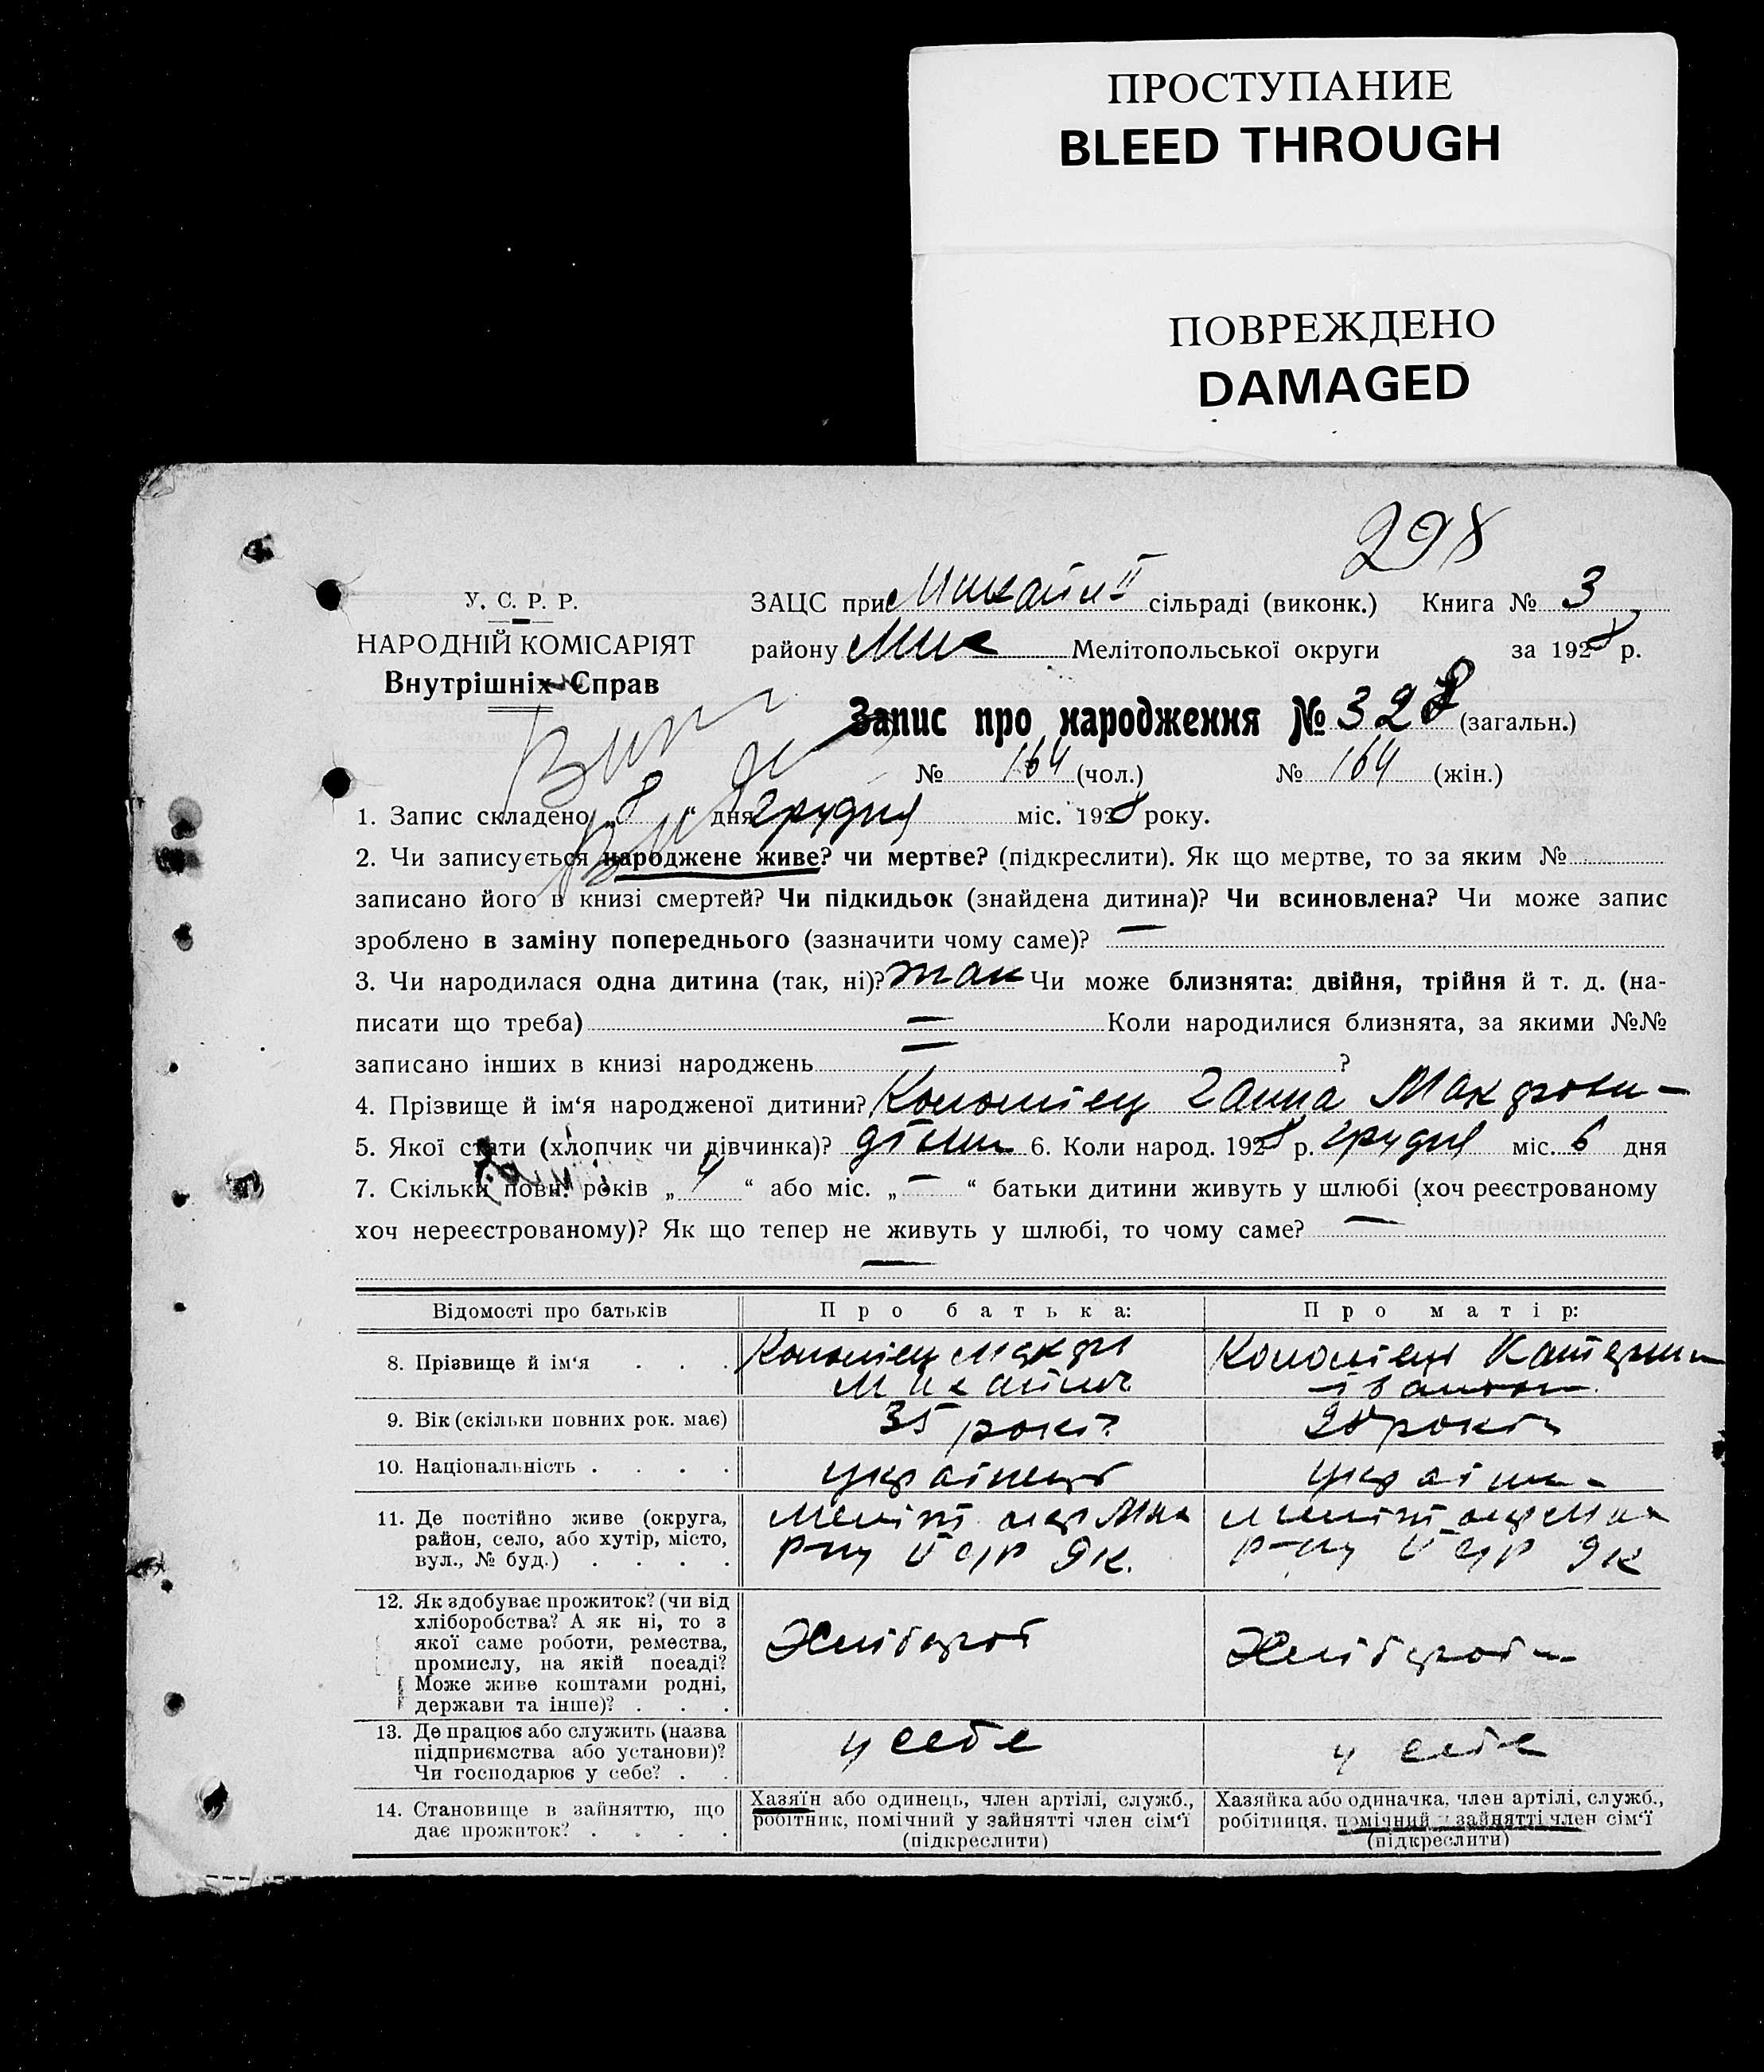 ПРОСТУПАНИЕ
BLEED THROUGH
ПОВРЕЖДЕНО
DAMAGED
298
У. С. Р. Р.
НАРОДНІЙ КОМІСАРІЯТ
Внутрішніх Справ
ЗАЦС при Михайл II сільраді (виконк.) Книга № 3
району Мих Мелітопольської округи за 1928 р.
Запис про народження № 328 (загальн.)
№ 164 (чол.) № 164 (жін.)
1. Запис складено „8“ дня грудня міс. 1928 року.
2. Чи записується народжене живе? чи мертве? (підкреслити). Як що мертве, то за яким №
записано його в книзі смертей? Чи підкидьок (знайдена дитина)? Чи всиновлена? Чи може запис
зроблено в заміну попереднього (зазначити чому саме)? —
3. Чи народилася одна дитина (так, ні)? так Чи може близнята: двійня, трійня й т. д. (на-
писати що треба) — Коли народилися близнята, за якими №№
записано інших в книзі народжень — ?
4. Прізвище й ім‘я народженої дитини? Коломієц Ганна Макрови-
5. Якої стати (хлопчик чи дівчинка)? 6. Коли народ. 1928 р. грудня міс. 6 дня
7. Скільки повн. років „4“ або міс. „—“ батьки дитини живуть у шлюбі (хоч реєстрованому
хоч нереєстрованому)? Як що тепер не живуть у шлюбі, то чому саме? —
—
Відомості про батьків Про батька: Про матір:
8. Прізвище й ім‘я . . . Коломієц Макар Михайлов Коломієць Катерин Іванов
9. Вік (скільки повних рок. має) 35 років років
10. Національність . . . . українець україн
11. Де постійно живе (округа,
район, село, або хутір, місто,
вул., № буд.) . . . .
Меліт окр Мих
р-ну II с/р Як.
Меліт окр Мих
р-ну II с/р Як
12. Як здобуває прожиток? (чи від
хліборобства? А як ні, то з
якої саме роботи, ремества,
промислу, на якій посаді?
Може живе коштами родні,
держави та інше)? . . .
Хлібороб
Хлібороб
13. Де працює або служить (назва
підприємства або установи)?
Чи господарює у себе? . .
у себе
у себе
14. Становище в зайняттю, що
дає прожиток? . . . .
Хазяїн або одинець, член артілі, служб.,
робітник, помічний у зайнятті член сім‘ї
(підкреслити)
Хазяйка або одиначка, член артілі, служб.,
робітниця, помічний у зайнятті член сім‘ї
(підкреслити)